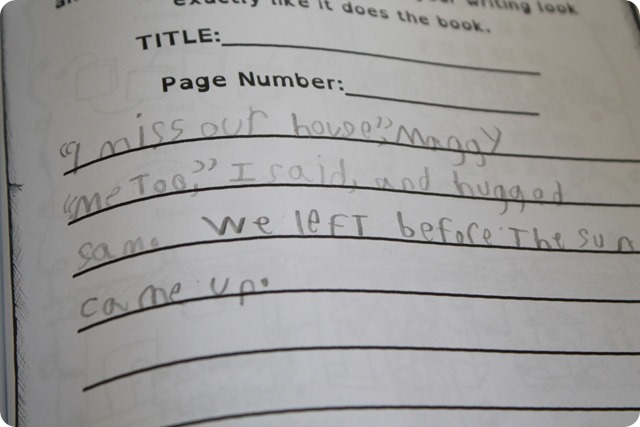 exactly like it does the book. writing look
TITLE:
Page Number:
“I miss our house”, Maggy
“me Too,” I said, and hugged
sam. We left before The sun
came up.